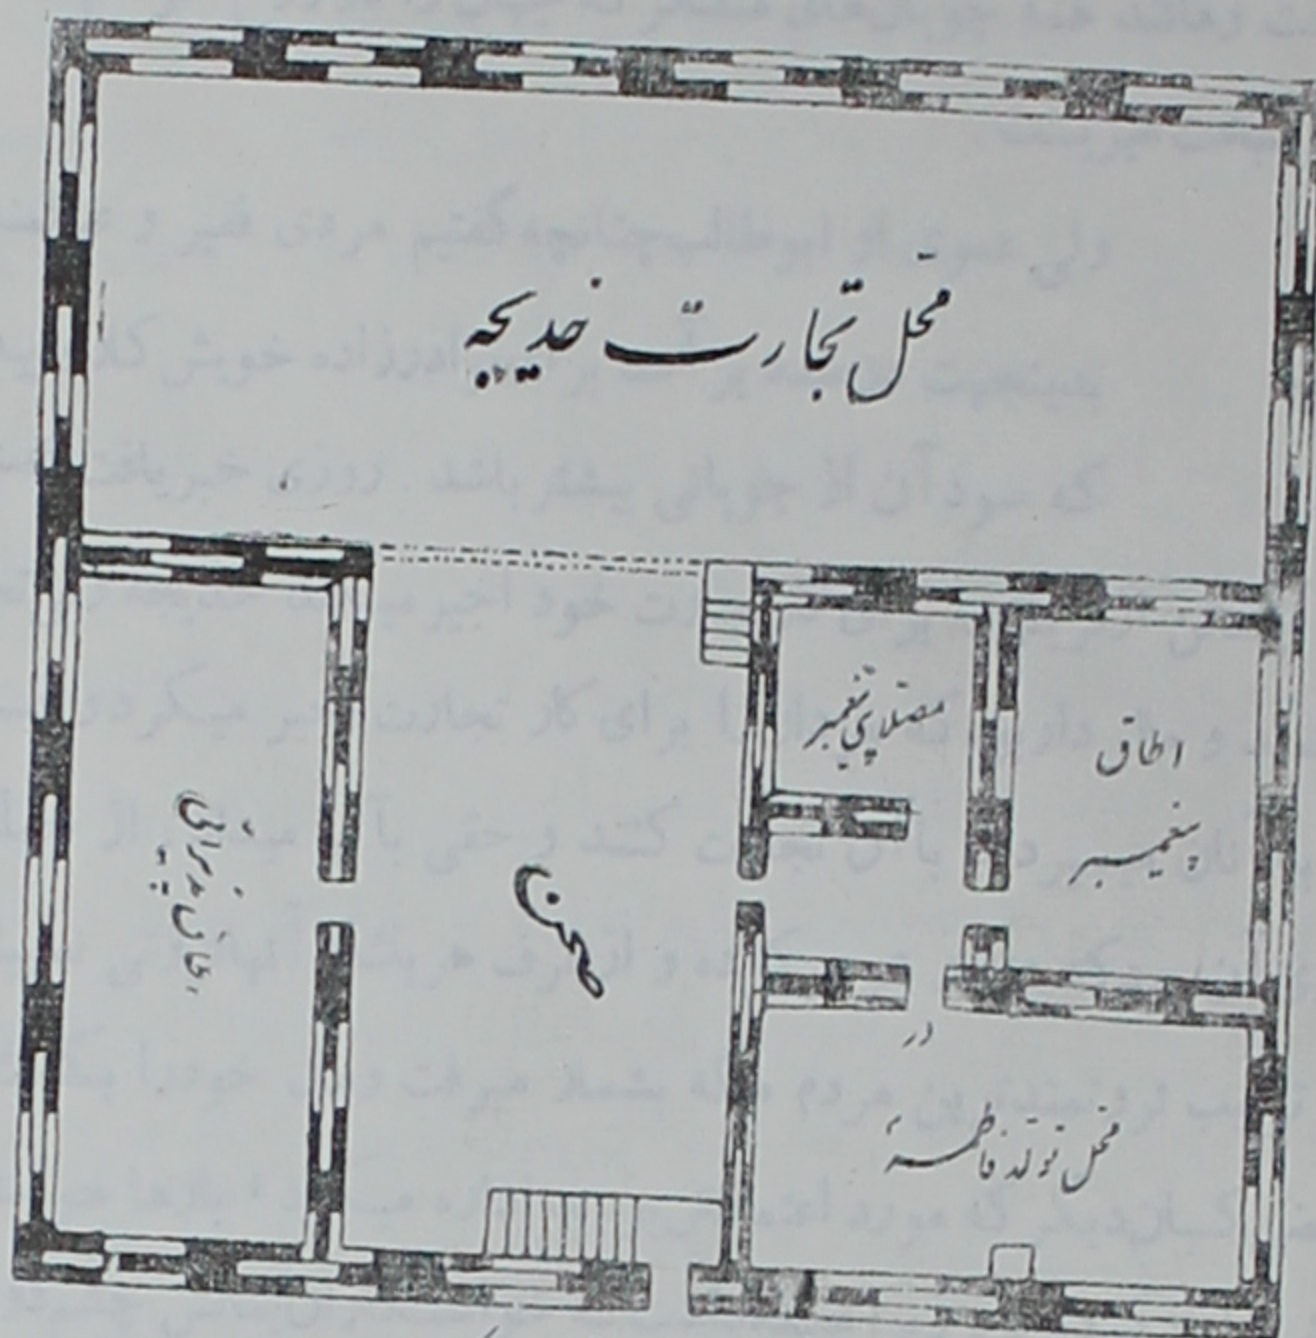 محل تجارت خدیجه
مصلای پیغمبر
اطاق
پیغمبر
اطاق پذیرائی
صحن
در
محل تولد فاطمهٔ